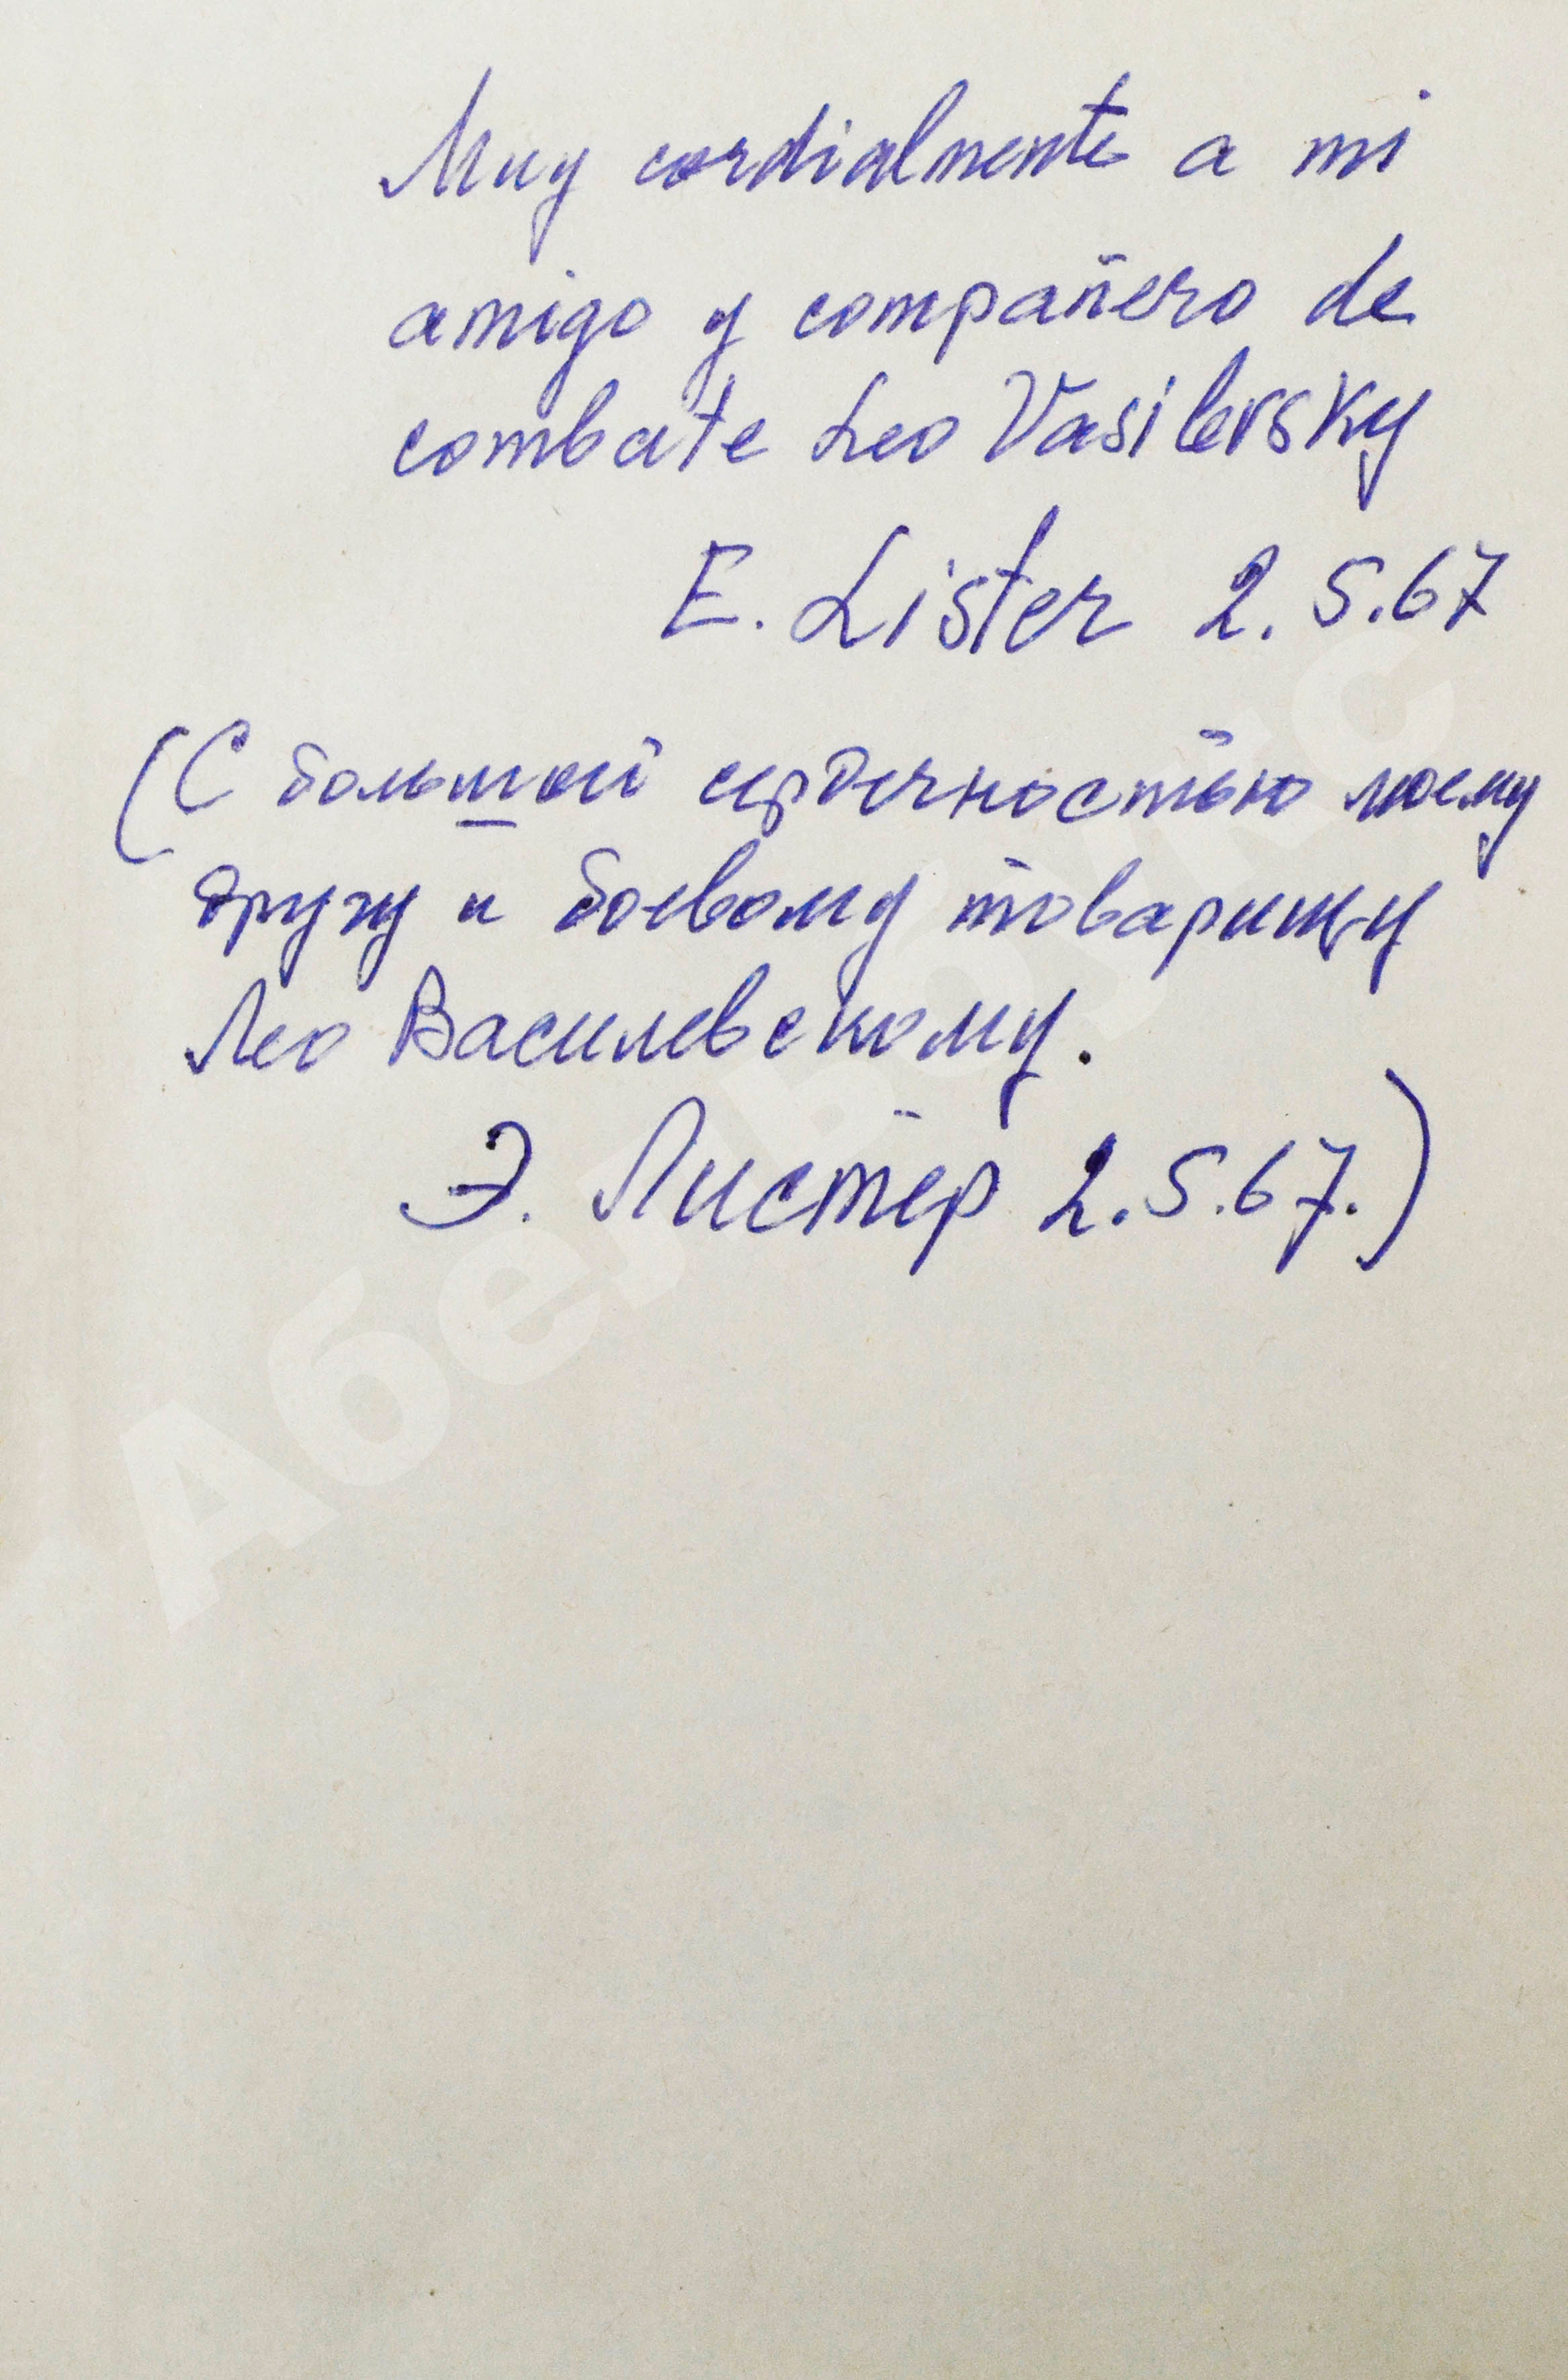 Muy cordialmente a mi
amigo y compañero de
combate Leo Vasilevsky
E. Lister 2.5.67
(С большой сердечностью моему
другу и боевому товарищу
Лео Василевскому.
Э. Листер 2.5.67.)